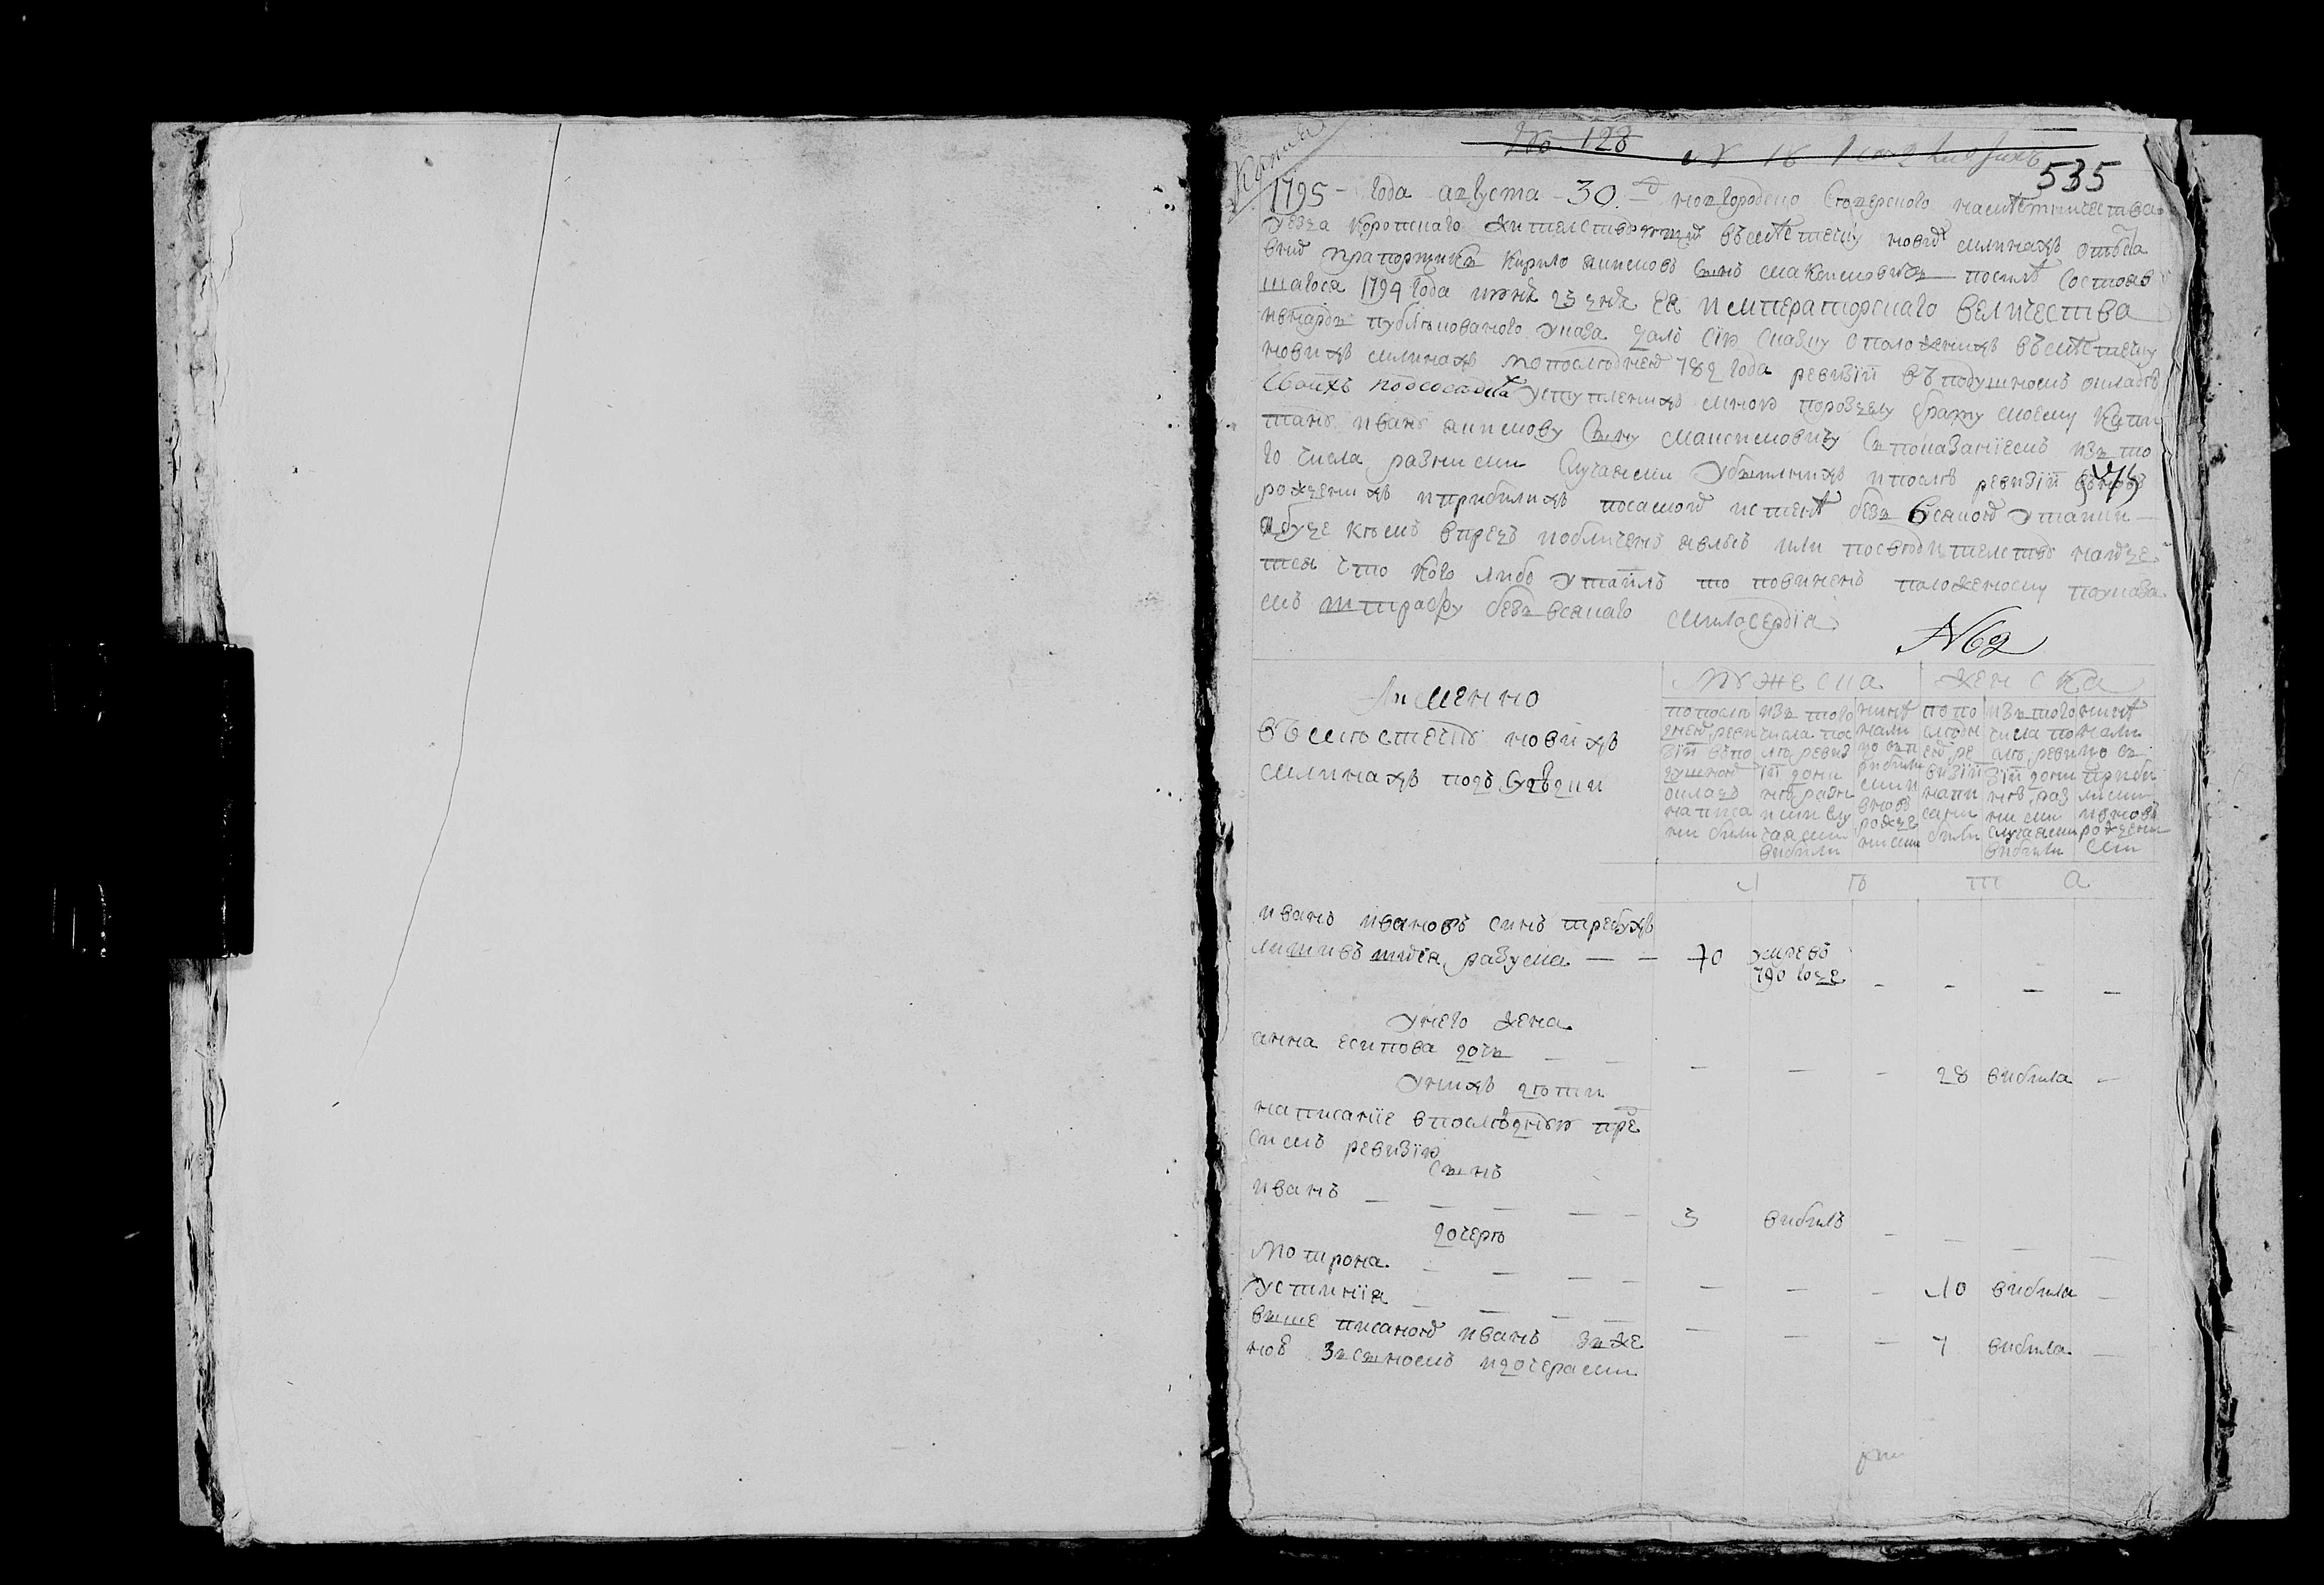 Копия
№ 128
535
1795 года августа 30 д новгородско Сѣверского намѣстничества
уезда Коропскаго жителствующий въ мѣстечку новихъ млинахъ отста
вний прапорщикъ Кирило якимовъ Синъ Максимовичъ посилѣ Состояв
шагося 1794 года июня 23 дня Ея императорскаго величества
публѣкованого указа далъ Сію Сказку о положенихъ въ мѣстечку
новихъ млинахъ попослѣдней 782 года ревизіи въ подушномъ окладѣ
своихъ уступленихъ мною брату моему Капи
тану ивану якимову Сыну максимовичу Съ показаніемъ изъ то
го числа разними Случаями убылнихъ и послѣ ревизіи вновь
рожденихъ и прибилихъ посамой истенѣ безъ Всякой утайки
а буде кѣмъ впредь обличенъ явлюсь или посвѣдителству найде
тся что кого либо утаилъ то повиненъ положеному поуказа
мъ штрафу безъ всякаго милосердія
№ 62
Имменно
въ мѣстечку новихъ
млинахъ подъ Сусѣдки
Мужеска Женска
попослѣ дней реви зіи въ по душной окладъ написа ни били
изъ того числа по слѣ ревиз іи дони нѣ разн ими слу чаями вибили
нинѣ нали цо съ п рибили ми и вновь рожде ними
по по слѣдн ей ре визіи напи сани били
изъ того числа по слѣ реви зіи дони нѣ раз ними случаями вибили
нинѣ нали цо съ приби лими и вновь рождени ми
л ѣ т а
иванъ ивановъ синъ требухъ
лишивъ шійся разума — — 70 умревъ
790 годе — — — —
у него жена
анна есипова дочь — — — — — 28 вибила —
у нихъ дѣти
написаніе в послѣднюю пре
симъ ревизію
Сынъ
иванъ — — — — — 3 вибилъ — — — —
дочерѣ
Мотрона — — — — — — — 10 вибила —
устинія — — — — — — — 7 вибила —
више писаной иванъ зъ же
ною зъ сыномъ и дочерами